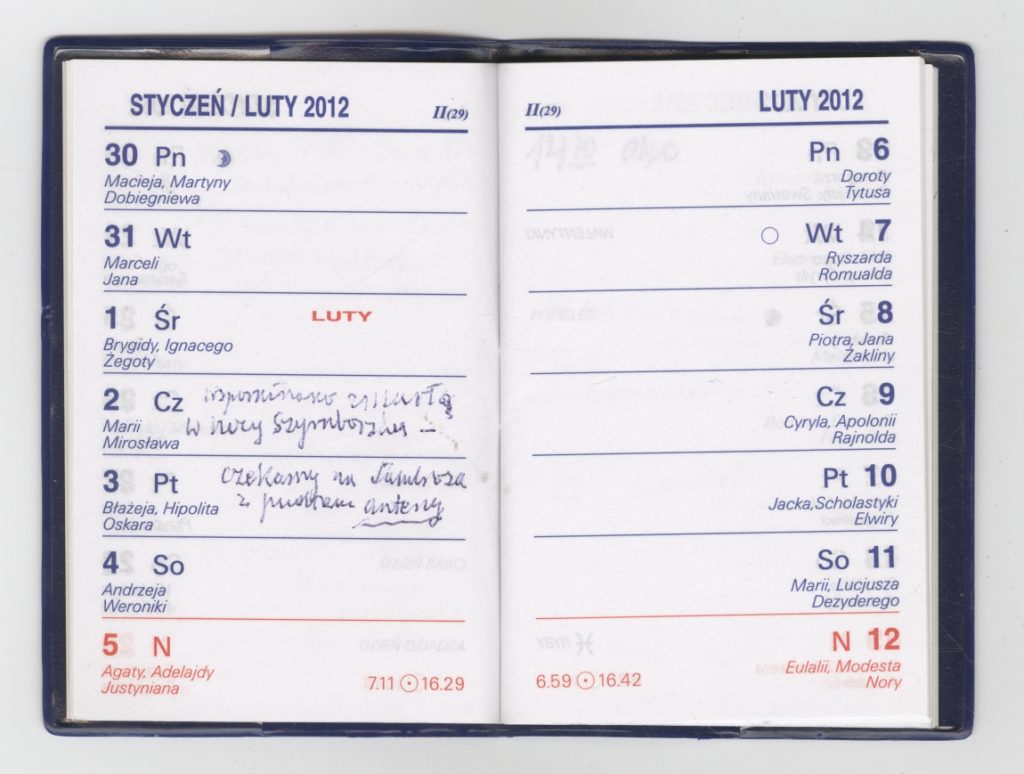 STYCZEŃ / LUTY 2012
II(29)
30 Pn
Macieja, Martyny
Dobiegniewa
31 Wt
Marceli
Jana
1 Śr
LUTY
Brygidy, Ignacego
Żegoty
2 Cz
zmarła
Marii
w nocy Szymborska –
Mirosława
3 Pt
czekamy na
Błażeja, Hipolita
z anteny
Oskara
4 So
Andrzeja
Weroniki
5 N
Agaty, Adelajdy
Justyniana
7.11 ☉ 16.29
II(29)
LUTY 2012
Pn 6
Doroty
Tytusa
Wt 7
Ryszarda
Romualda
Śr 8
Piotra, Jana
Żakliny
Cz 9
Cyryla, Apolonii
Rajnolda
Pt 10
Jacka,Scholastyki
Elwiry
So 11
Marii, Lucjusza
Dezyderego
N 12
Eulalii, Modesta
Nory
6.59 ☉ 16.42